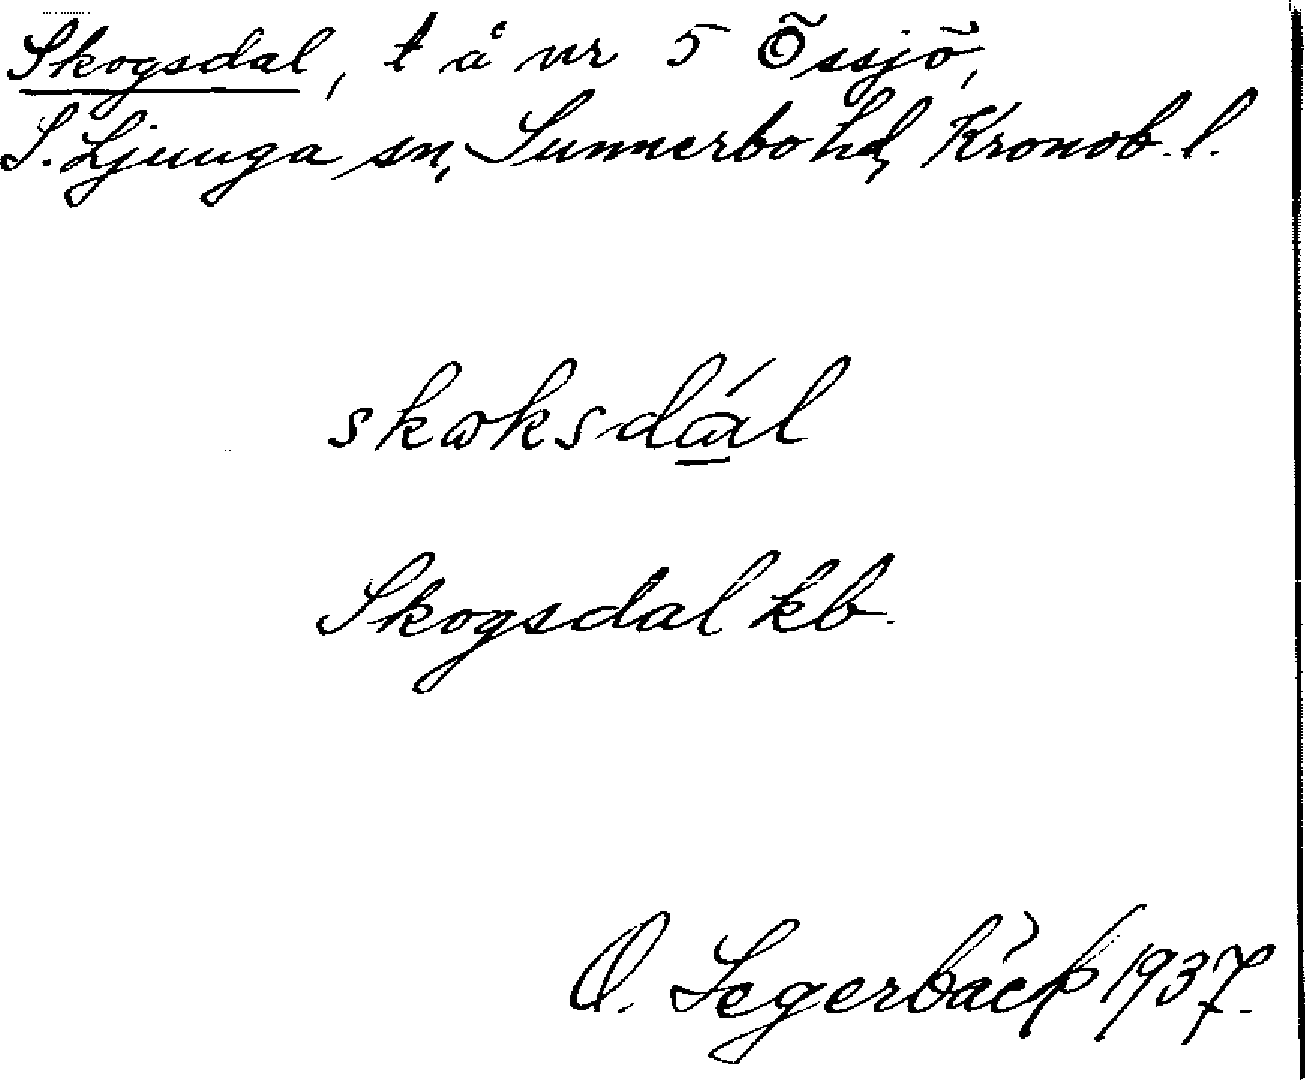 Skogsdal, t å nr 5 Össjö,
S. Ljunga sn, Sunnerbo hd, Kronob. l.
skɷksdál
Skogsdal kb.
O. Segerbäck 1937.